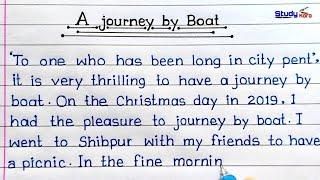 A journey by Boat
Study Koro
'To one who has been long in city pent',
it is very thrilling to have a journey by
boat. On the Christmas day in 2019, I
had the pleasure to journey by boat. I
went to Shibpur with my friends to have
a picnic. In the fine mornin